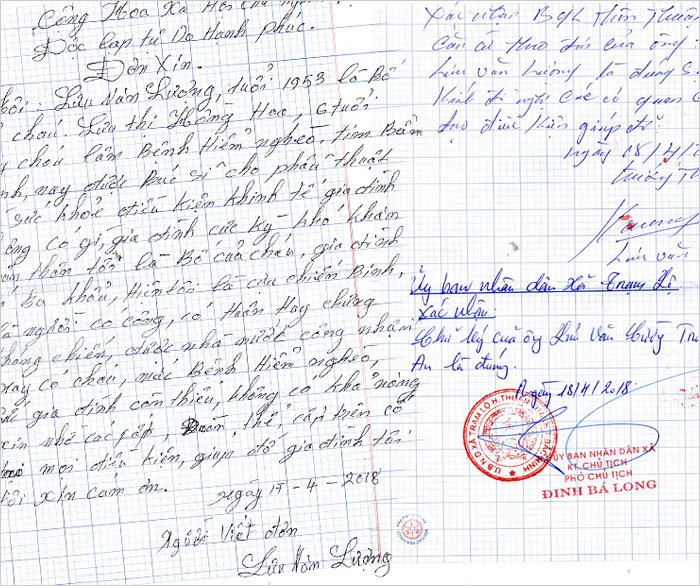 Cộng Hoa Xã Hội Chủ Ng
Độc lập tự Do Hạnh phúc.
Đơn Xin.
Lưu Văn Lượng, tuổi 1953 là Bố
cháu. Lưu thị Hồng Hoa, 6 tuổi
cháu lâm Bệnh Hiểm nghèo. tim Bẩm
nay được Bác sĩ cho phẩu thuật
sức khoẻ điều kiện khinh tế gia đình
có gì, gia đình cực kỳ kho khăn
thân tôi là Bố của cháu, gia đình
ba khẩu, Hiện tôi là cựu chiến Binh,
người có công, có Huân Huy chứng
kháng chiến, được nhà nước công nhận
nay có cháu, mắc Bệnh Hiểm nghèo,
gia đình còn thiếu, không có khả năng
xin nhờ các cấp, thể cấp trên có
mọi điều kiện, giúp đở gia đình tôi
tôi xin cam ơn.
ngày 17-4-2018
Người Viết đơn
Lưu Văn Lượng
Xác nhận
Căn cứ theo của ông.
Lưu văn Lượng là đúng
Kính đề nghị các cơ quan
tạo điều kiện giúp đỡ.
ngày 18/4/
trưởng Th
Lưu văn
Ủy ban nhân dân Xã Trạm Lộ
Xác nhận
Chữ ký của ông Lưu Văn
An là đúng.
Ngày 18/4/2018
ỦY BAN NHÂN DÂN XÃ
KT. CHỦ TỊCH
PHÓ CHỦ TỊCH
ĐINH BÁ LONG